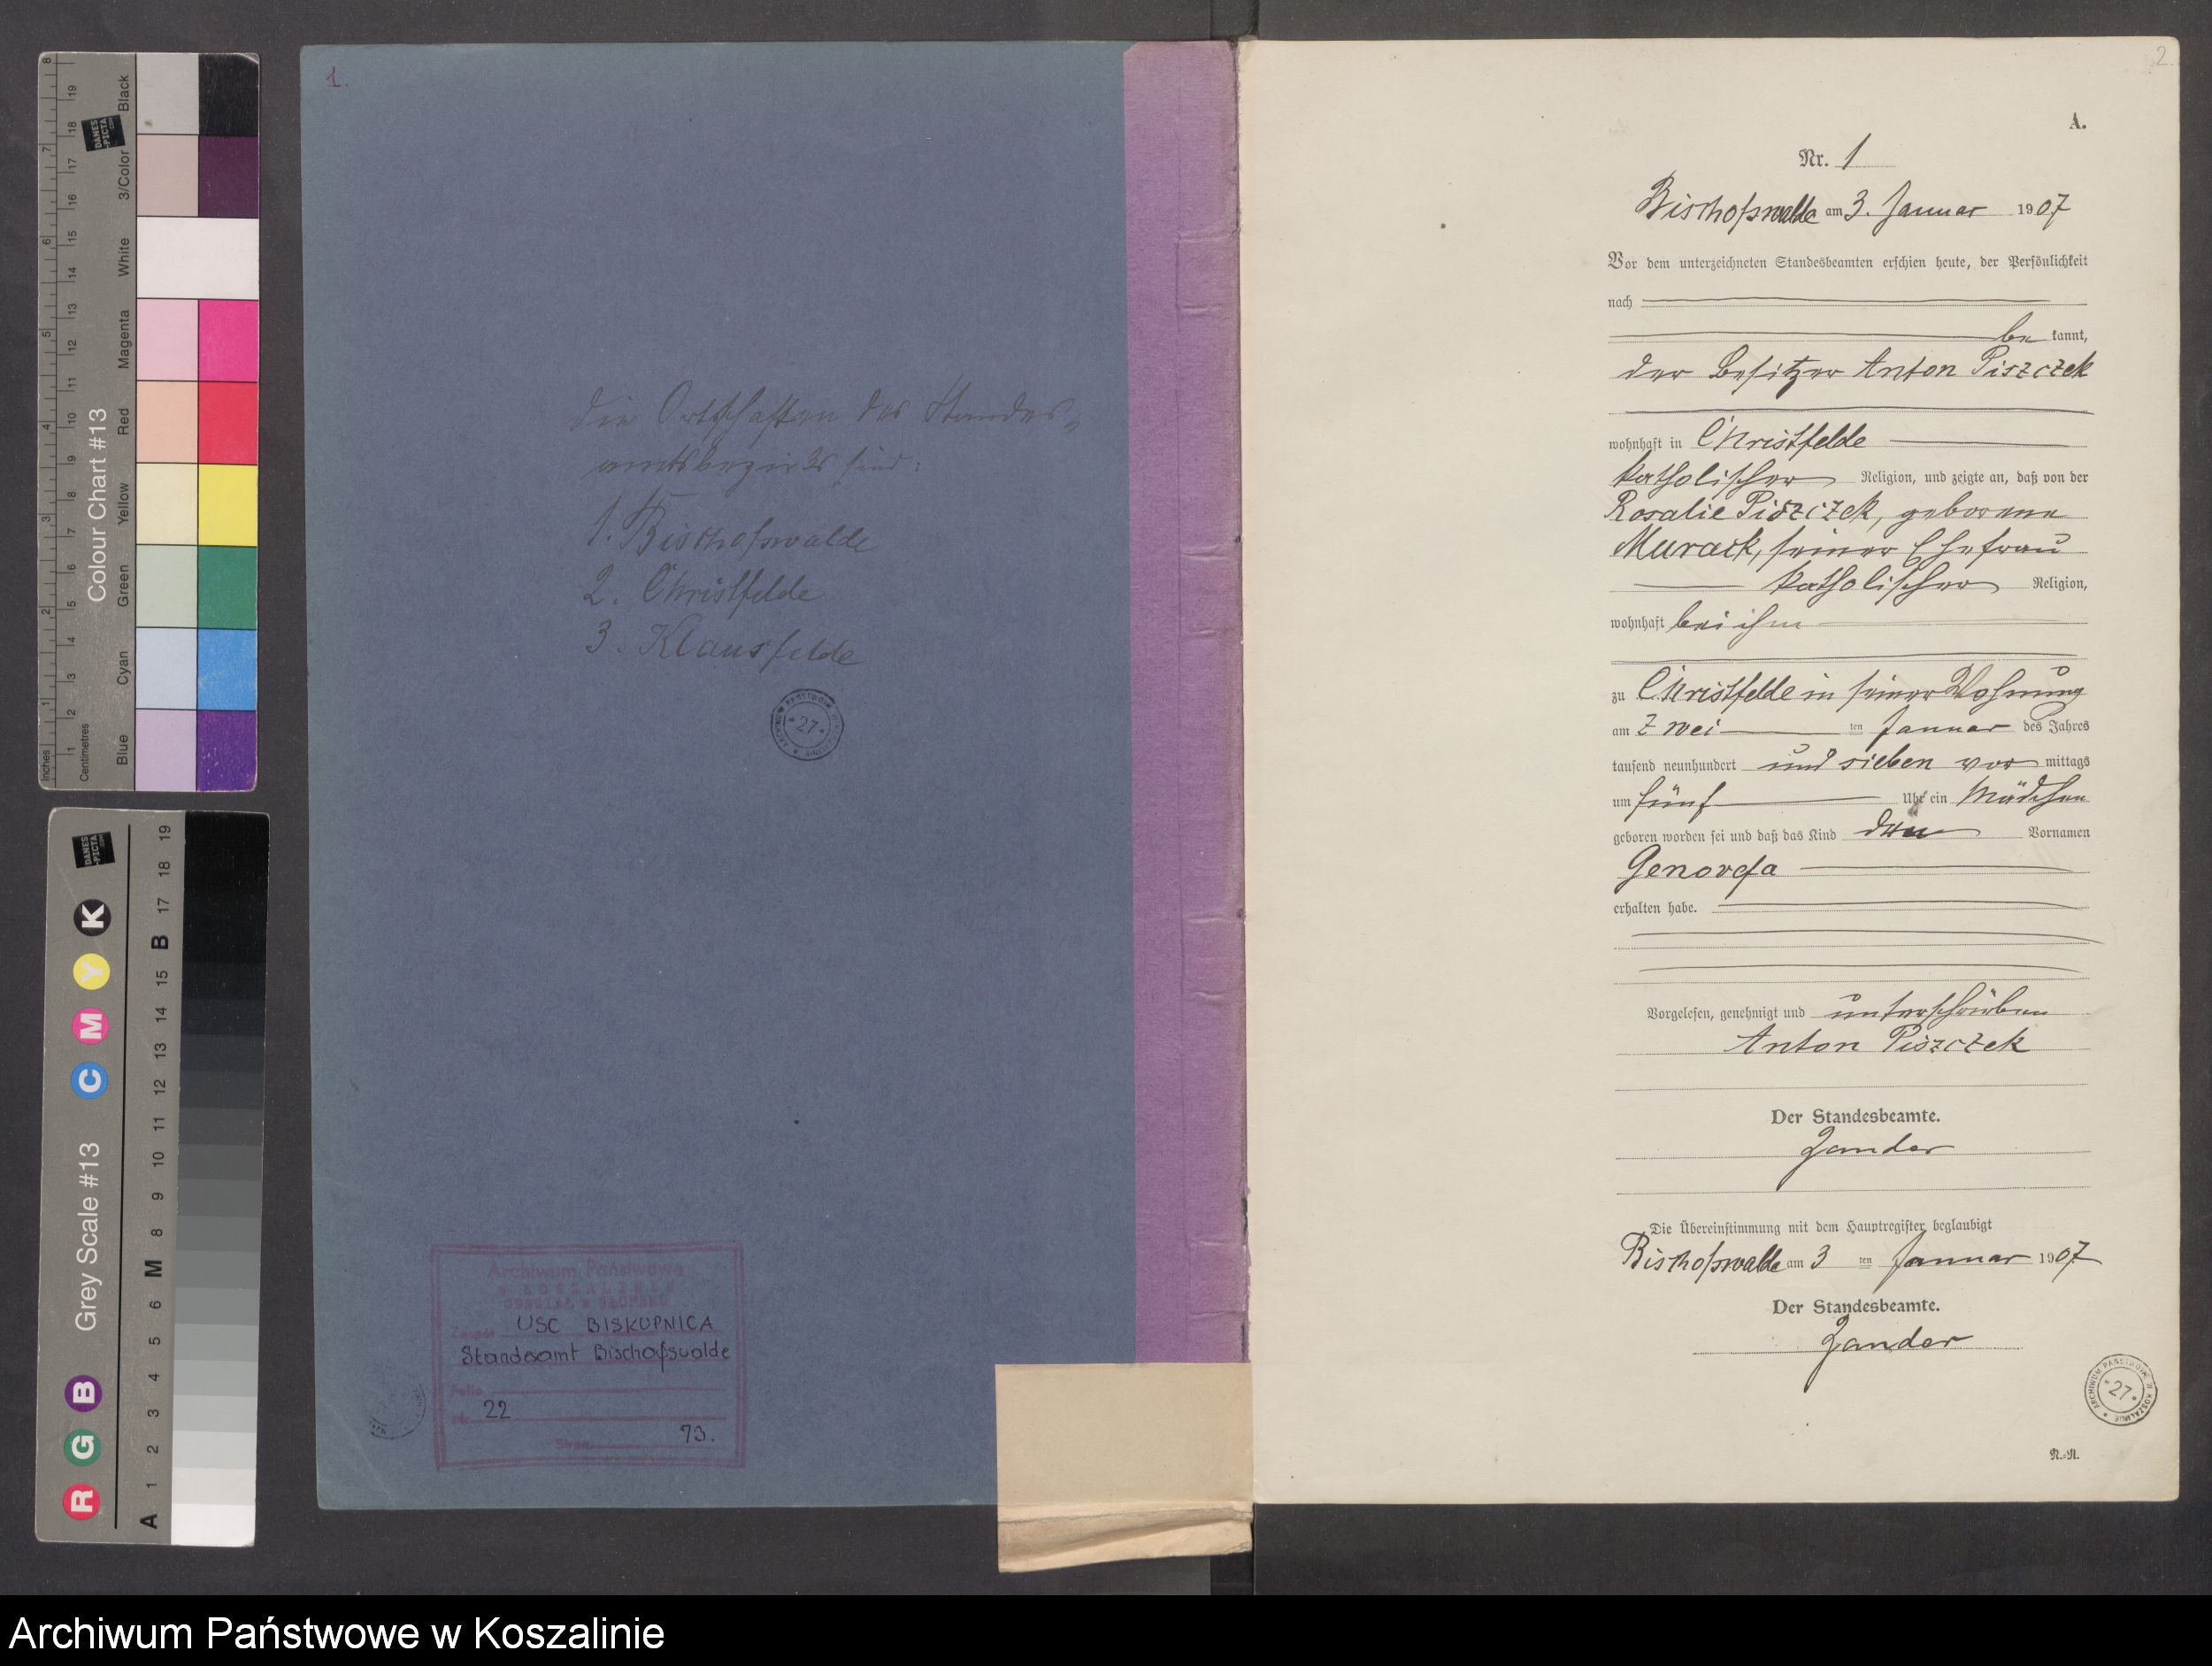 1.
die Ortschaften des Standes-
amtsbezirks sind:
1. Bischofswalde
2. Christfelde
3. Klausfelde
ARCHIWUM PAŃSTWOWE W KOSZALINIE
27
Archiwum Państwowe
w KOSZALINIE
Zespół USC BISKUPNICA
Standesamt Bischofswalde
22
Stron 73.
2.
A.
Nr. 1
Bischofswalde am 3. Januar 1907
Vor dem unterzeichneten Standesbeamten erschien heute, der Persönlichkeit
nach
be kannt,
der Besitzer Anton Piszczek
wohnhaft in Christfelde
katholischer Religion, und zeigte an, daß von der
Rosalie Piszczek, geborene
Murack, seiner Ehefrau
katholischer Religion,
wohnhaft bei ihm
zu Christfelde in seiner Wohnung
am zwei ten Januar des Jahres
tausend neunhundert und sieben vor mittags
um fünf Uhr ein Mädchen
geboren worden sei und daß das Kind den Vornamen
Genovefa
erhalten habe.
Vorgelesen, genehmigt und unterschrieben
Anton Piszczek
Der Standesbeamte.
Zander
Die Übereinstimmung mit dem Hauptregister beglaubigt
Bischofswalde am 3 ten Januar 1907
Der Standesbeamte.
Zander
ARCHIWUM PAŃSTWOWE W KOSZALINIE
27
N.-N.
Inches
Centimetres
Colour Chart #13
Blue Cyan Green Yellow Red Magenta White 3/Color Black
DANES
-PICTA
.COM
1 2 3 4 5 6 7 8
1 2 3 4 5 6 7 8 9 10 11 12 13 14 15 16 17 18 19
R G B Grey Scale #13 C M Y K
DANES
-PICTA
.COM
A 1 2 3 4 5 6 M 8 9 10 11 12 13 14 15 B 17 18 19
Archiwum Państwowe w Koszalinie